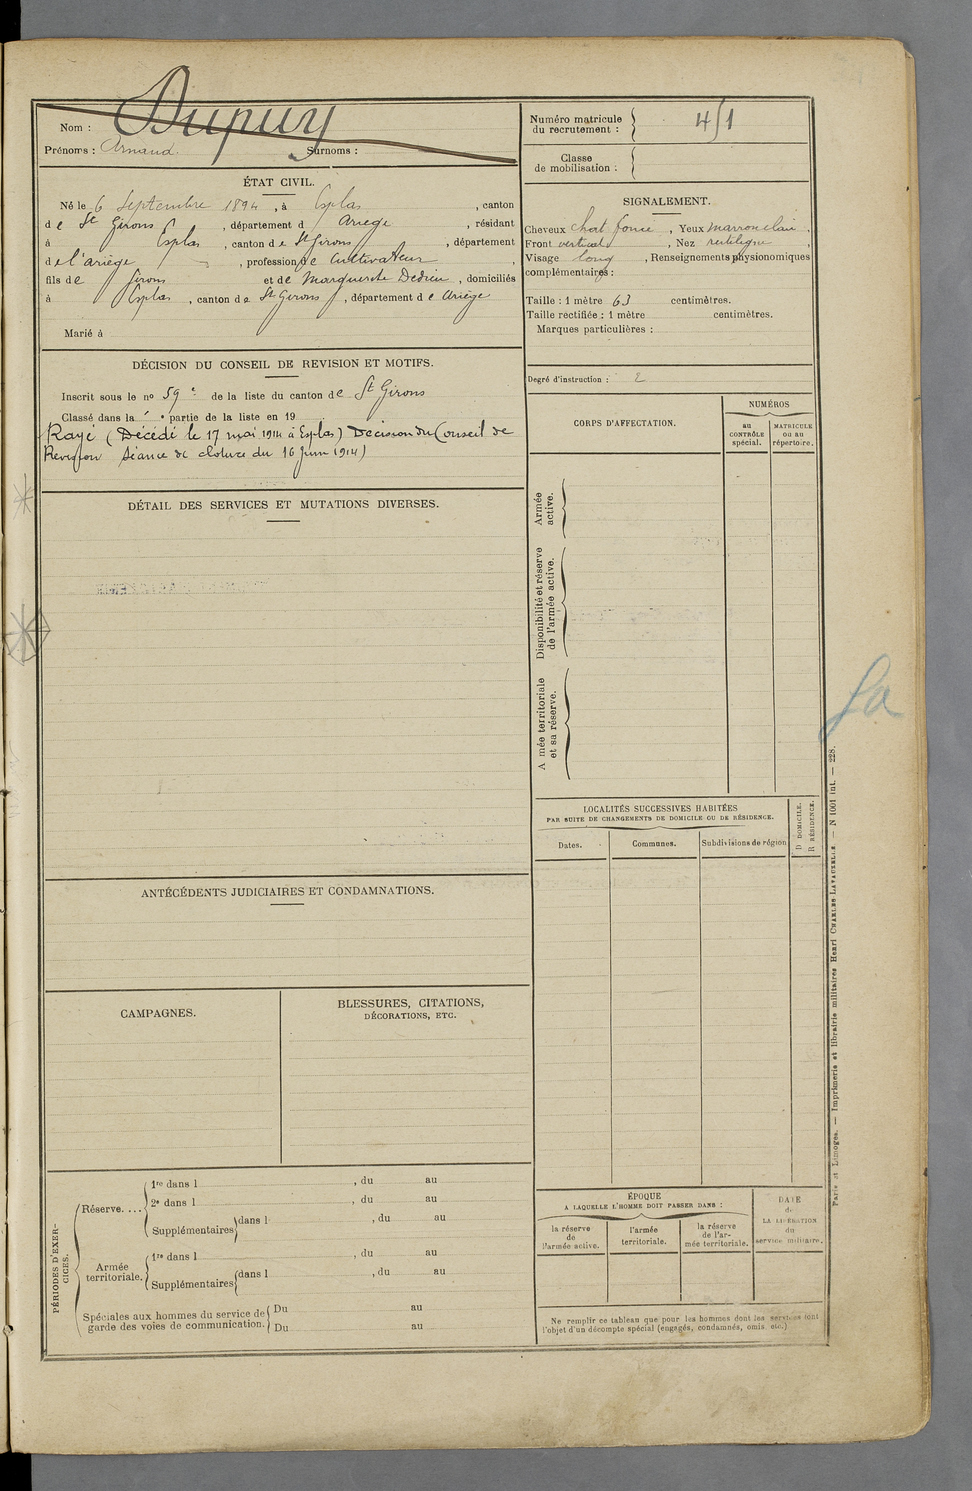 Nom : Dupuy
Prénoms : Arnaud. Surnoms :
ÉTAT CIVIL.
Né le 6 Septembre 1894, à Esplas, canton
de St Girons, département d Ariège, résidant
à Esplas, canton de St Girons, département
de l'ariège, profession de Cultivateur,
fils de Girons et de Marguerite Dedieu, domiciliés
à Esplas, canton de St Girons, département de Ariège
Marié à
DÉCISION DU CONSEIL DE REVISION ET MOTIFS.
Inscrit sous le no 59e de la liste du canton de St Girons
Classé dans la e partie de la liste en 19
Rayé (Décédé le 17 mai 1914 à Esplas) Décision du Conseil de
Revision séance de cloture du 16 juin 1914)
DÉTAIL DES SERVICES ET MUTATIONS DIVERSES.
ANTÉCÉDENTS JUDICIAIRES ET CONDAMNATIONS.
CAMPAGNES.
BLESSURES, CITATIONS,
DÉCORATIONS, ETC.
PÉRIODES D'EXER-
CICES.
Réserve. ...
1re dans l , du au
2e dans l , du au
Supplémentaires dans l , du au
Armée
territoriale.
1re dans l , du au
Supplémentaires dans l , du au
Spéciales aux hommes du service de
garde des voies de communication.
Du au
Du au
Numéro matricule
du recrutement : 451
Classe
de mobilisation :
SIGNALEMENT.
Cheveux chat foncé, Yeux marron clair,
Front vertical, Nez rectiligne,
Visage long, Renseignements physionomiques
complémentaires :
Taille : 1 mètre 63 centimètres.
Taille rectifiée : 1 mètre centimètres.
Marques particulières :
Degré d'instruction : 2
CORPS D'AFFECTATION.
NUMÉROS
au
CONTRÔLE
spécial.
MATRICULE
ou au
répertoire.
Armée
active.
Disponibilité et réserve
de l'armée active.
A mée territoriale
et sa réserve.
LOCALITÉS SUCCESSIVES HABITÉES
PAR SUITE DE CHANGEMENTS DE DOMICILE OU DE RÉSIDENCE.
Dates.
Communes.
Subdivisions de région
D DOMICILE.
R RÉSIDENCE.
ÉPOQUE
A LAQUELLE L'HOMME DOIT PASSER DANS :
la réserve
de
l'armée active.
l'armée
territoriale.
la réserve
de l'ar-
mée territoriale.
DATE
de
LA LIBÉRATION
du
service militaire.
Ne remplir ce tableau que pour les hommes dont les services font
l'objet d'un décompte spécial (engagés, condamnés, omis, etc.)
Paris et Limoges. — Imprimerie et librairie militaires Henri CHARLES-LAVAUZELLE. — N 1001 int. — 228.